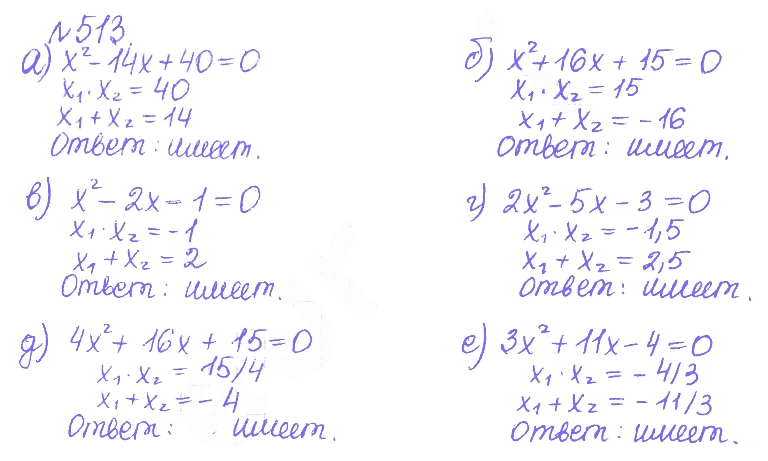 №513
а) x² - 14x + 40 = 0
x₁ · x₂ = 40
x₁ + x₂ = 14
Ответ: имеет.
б) x² + 16x + 15 = 0
x₁ · x₂ = 15
x₁ + x₂ = -16
Ответ: имеет.
в) x² - 2x - 1 = 0
x₁ · x₂ = -1
x₁ + x₂ = 2
Ответ: имеет.
г) 2x² - 5x - 3 = 0
x₁ · x₂ = -1,5
x₁ + x₂ = 2,5
Ответ: имеет.
д) 4x² + 16x + 15 = 0
x₁ · x₂ = 15/4
x₁ + x₂ = -4
Ответ: имеет.
е) 3x² + 11x - 4 = 0
x₁ · x₂ = -4/3
x₁ + x₂ = -11/3
Ответ: имеет.